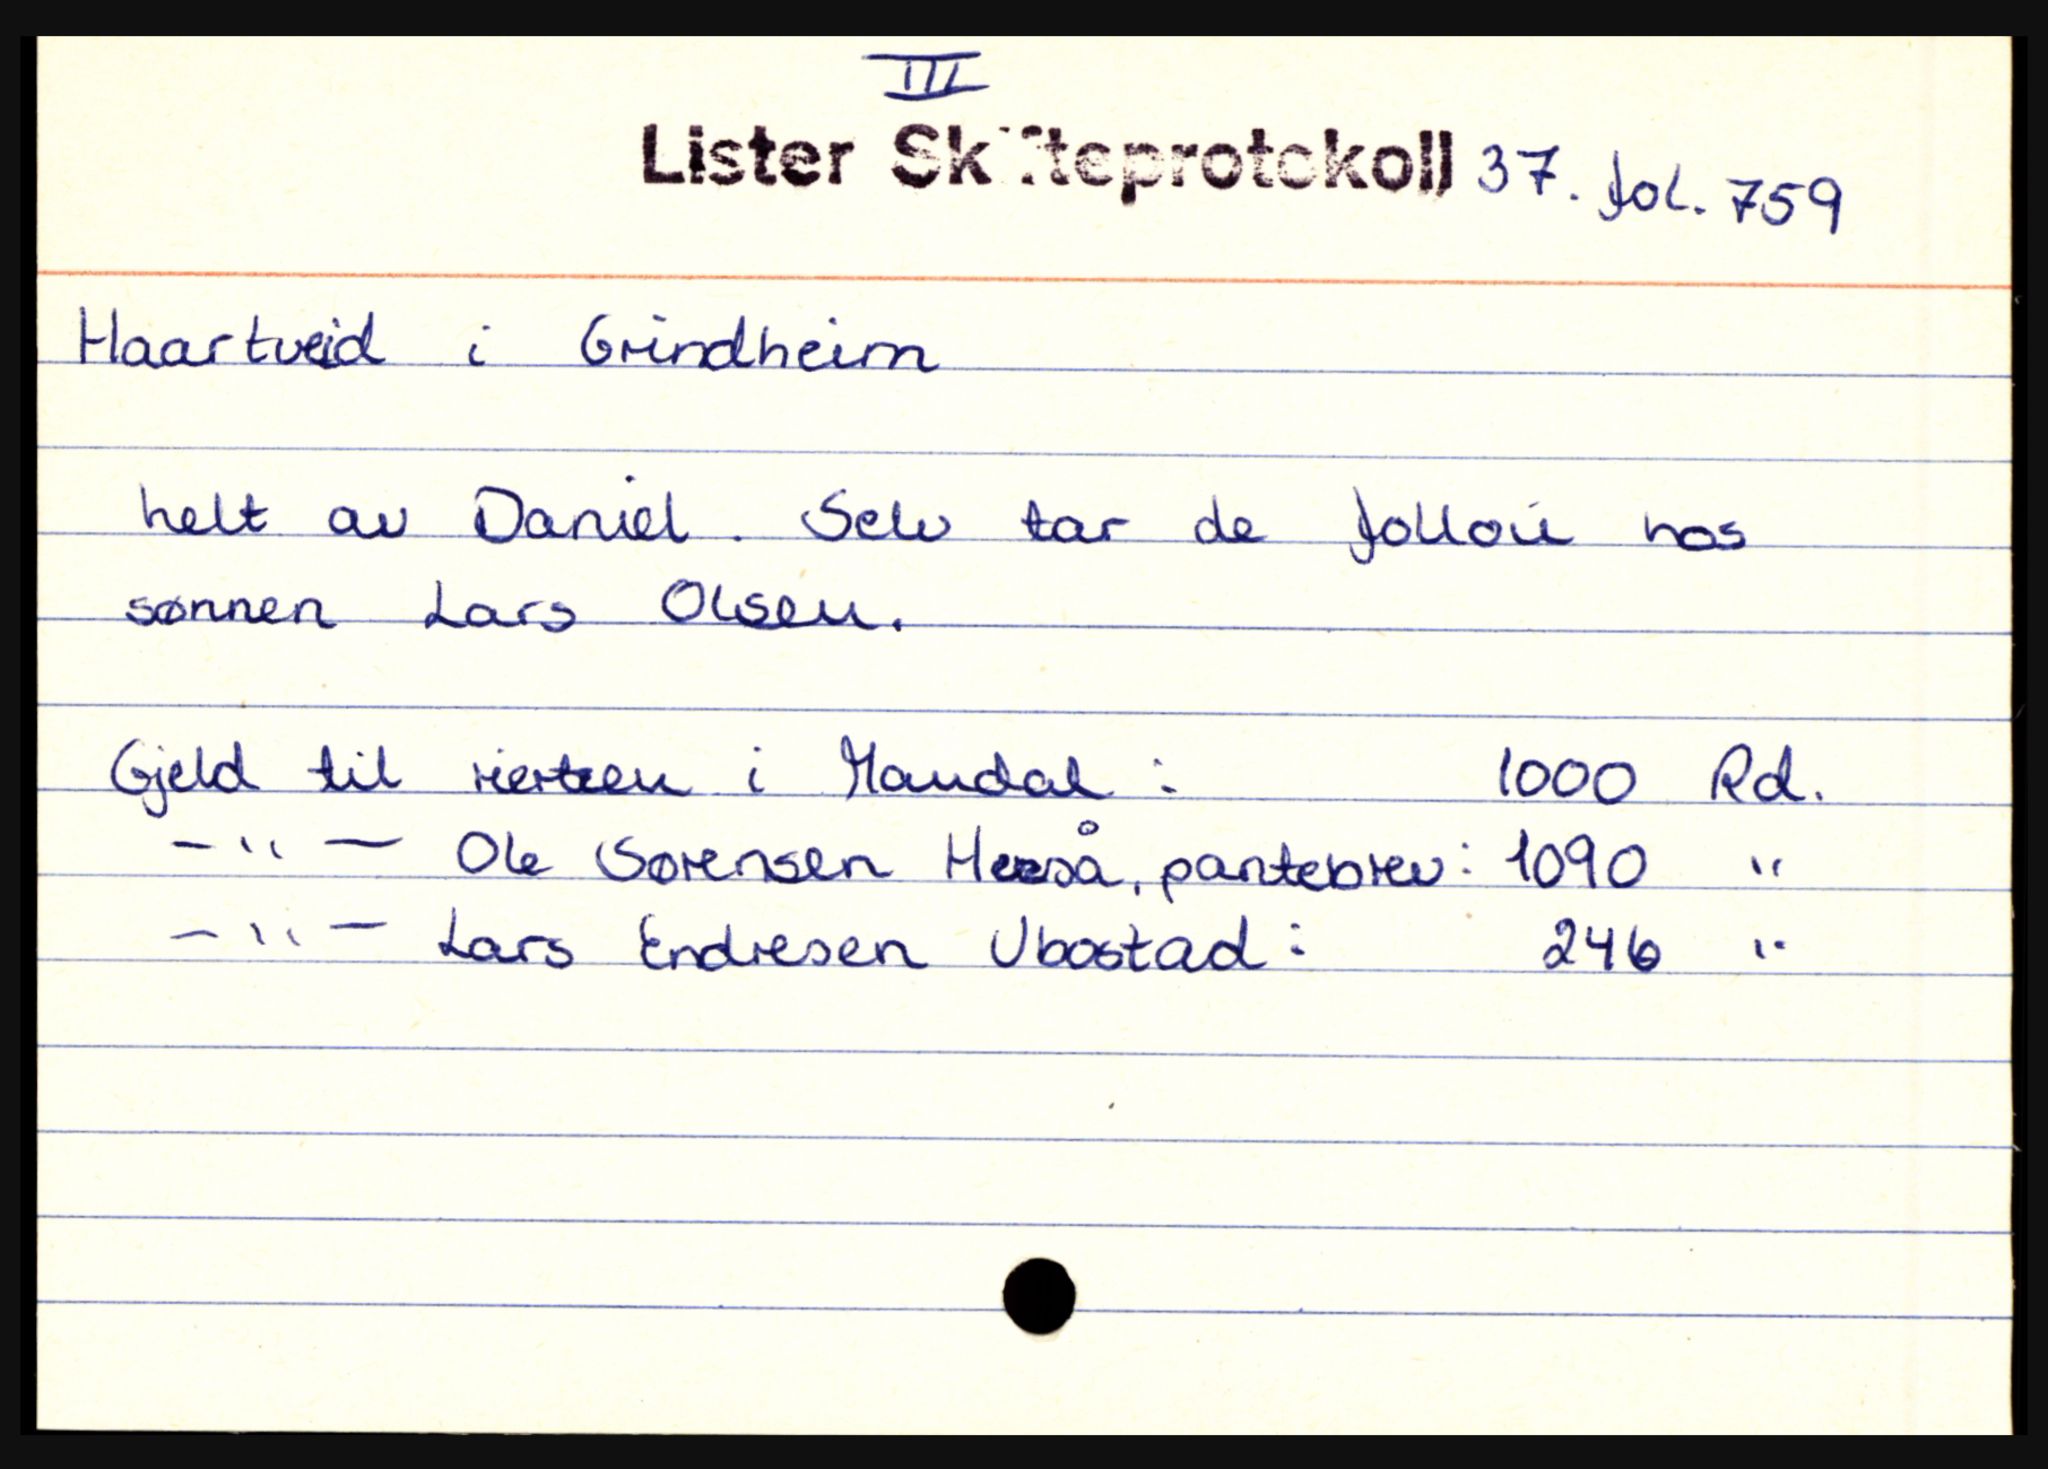 III
Lister Skifteprotokoll 37. fol. 759
Haartveid i Grindheim
helt av Daniel. Selv tar de follou hos
sønnen Lars Olsen.
Gjeld til i Mandal: 1000 Rd.
-"- Ole Sørensen pantebrev: 1090 "
-"- Lars Endresen Ubostad: 246 "